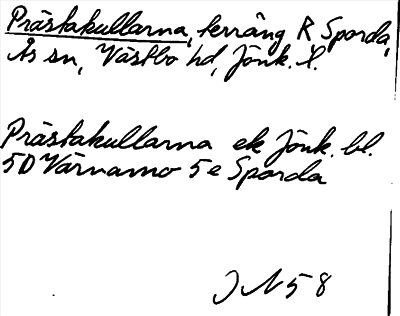 Prästakullarna, terräng R Sporda,
Ås sn, Västbo hd, Jönk. l.
Prästakullarna ek Jönk. bl.
5D Värnamo 5e Sporda
J N 58